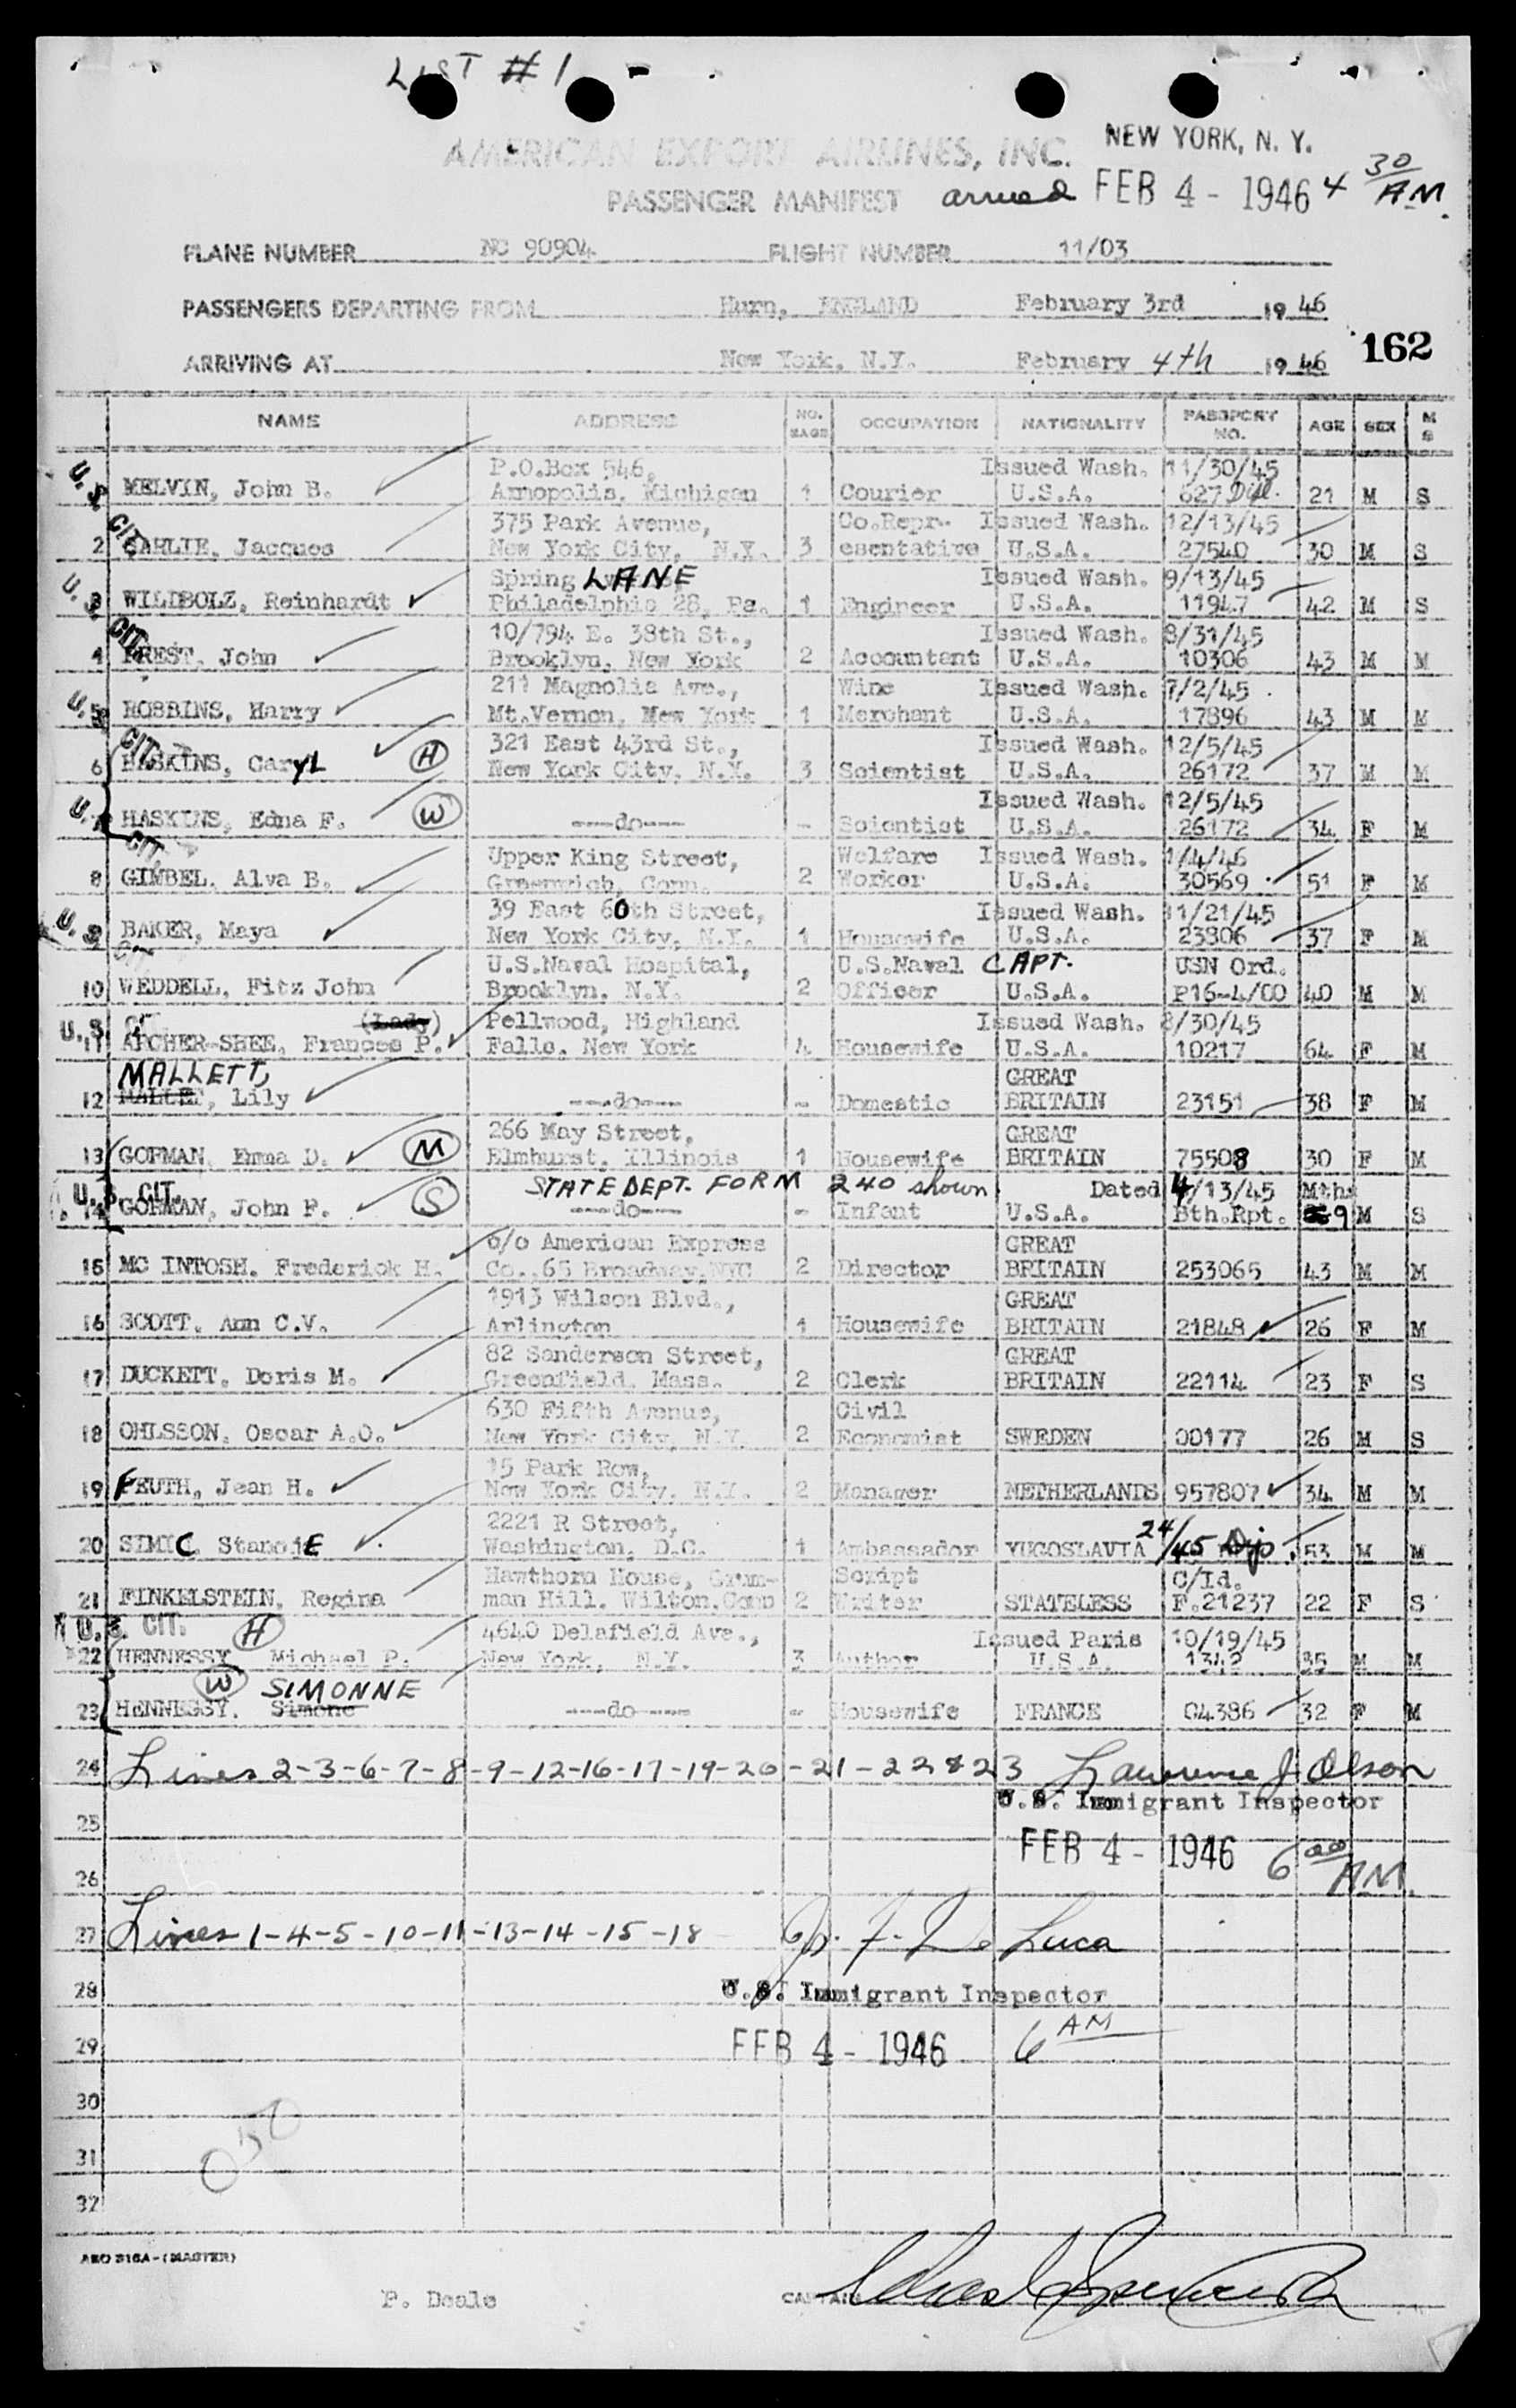 LIST #1
AMERICAN EXPORT AIRLINES, INC. NEW YORK, N. Y.
PASSENGER MANIFEST arrived FEB 4 - 1946 4 30 AM.
PLANE NUMBER NC 90904 FLIGHT NUMBER 11/03
PASSENGERS DEPARTING FROM Hurn, ENGLAND February 3rd 19 46
162
ARRIVING AT New York, N.Y. February 4th 19 46
NAME ADDRESS NO. BAGS OCCUPATION NATIONALITY PASSPORT NO. AGE SEX M S
U.S. CIT. P.O.Box 546, Issued Wash. 11/30/45
MELVIN, John B. Annopolis, Michigan 1 Courier U.S.A. 627 Dipl. 21 M S
375 Park Avenue, Co.Repr- Issued Wash. 12/13/45
2 CARLIE, Jacques New York City, N.Y. 3 esentative U.S.A. 27540 30 M S
U.S. CIT. Spring LANE Issued Wash. 9/13/45
3 WILDBOLZ, Reinhardt Philadelphia 28, Pa. 1 Engineer U.S.A. 11947 42 M S
10/794 E. 38th St., Issued Wash. 8/31/45
4 PREST, John Brooklyn, New York 2 Accountant U.S.A. 10306 43 M M
U.S. CIT. 211 Magnolia Ave., Wine Issued Wash. 7/2/45
5 ROBBINS, Harry Mt.Vernon, New York 1 Merchant U.S.A. 17896 43 M M
321 East 43rd St., Issued Wash. 12/5/45
6 HASKINS, CarYL H New York City, N.Y. 3 Scientist U.S.A. 26172 37 M M
U.S. CIT. Issued Wash. 12/5/45
7 HASKINS, Edna F. W ----do---- - Scientist U.S.A. 26172 34 F M
Upper King Street, Welfare Issued Wash. 1/4/46
8 GIMBEL, Alva B. Greenwich, Conn. 2 Worker U.S.A. 30569 51 F M
U.S. CIT. 39 East 60th Street, Issued Wash. 11/21/45
9 BAKER, Maya New York City, N.Y. 1 Housewife U.S.A. 23806 37 F M
U.S.Naval Hospital, U.S.Naval CAPT. USN Ord.
10 WEDDELL, Fitz John Brooklyn, N.Y. 2 Officer U.S.A. P16-4/00 40 M M
U.S. CIT. (Lady) Pellwood, Highland Issued Wash. 8/30/45
11 ARCHER-SHEE, Frances P. Falls, New York 4 Housewife U.S.A. 10217 64 F M
MALLETT, GREAT
12 MALLET, Lily ----do---- - Domestic BRITAIN 23151 38 F M
266 May Street, GREAT
13 GORMAN, Emma D. M Elmhurst, Illinois 1 Housewife BRITAIN 75508 30 F M
U.S. CIT. STATE DEPT. FORM 240 shown Dated 4/13/45 Mths
14 GORMAN, John F. S ----do---- - Infant U.S.A. Bth.Rpt. 9 M S
c/o American Express GREAT
15 MC INTOSH, Frederick H. Co.,65 Broadway,NYC 2 Director BRITAIN 253065 43 M M
1913 Wilson Blvd., GREAT
16 SCOTT, Ann C.V. Arlington 1 Housewife BRITAIN 21848 26 F M
82 Sanderson Street, GREAT
17 DUCKETT, Doris M. Greenfield, Mass. 2 Clerk BRITAIN 22114 23 F S
630 Fifth Avenue, Civil
18 OHLSSON, Oscar A.O. New York City, N.Y. 2 Economist SWEDEN 00177 26 M S
15 Park Row,
19 FEUTH, Jean H. New York City, N.Y. 2 Manager NETHERLANDS 957807 34 M M
2221 R Street,
20 SIMIC, StanoiE Washington, D.C. 1 Ambassador YUGOSLAVIA 24/45 Dip. 53 M M
Hawthorn House, Grum- Script C/Id.
21 FINKELSTEIN, Regina man Hill, Wilton,Conn 2 Writer STATELESS F.21237 22 F S
U.S. CIT. H 4640 Delafield Ave., Issued Paris 10/19/45
22 HENNESSY, Michael P. New York, N.Y. 3 Author U.S.A. 1342 35 M M
W SIMONNE
23 HENNESSY, Simone ----do---- - Housewife FRANCE 04386 32 F M
24 Lines 2-3-6-7-8-9-12-16-17-19-20-21-22&23 Lawrence J. Olson
U.S. Immigrant Inspector
25
FEB 4 - 1946 6 00 AM.
26
27 Lines 1-4-5-10-11-13-14-15-18 F. De Luca
28 U.S. Immigrant Inspector
29 FEB 4 - 1946 6 AM
30
050
31
32
AEO 316A-(MASTER)
P. Deale CAPTAIN